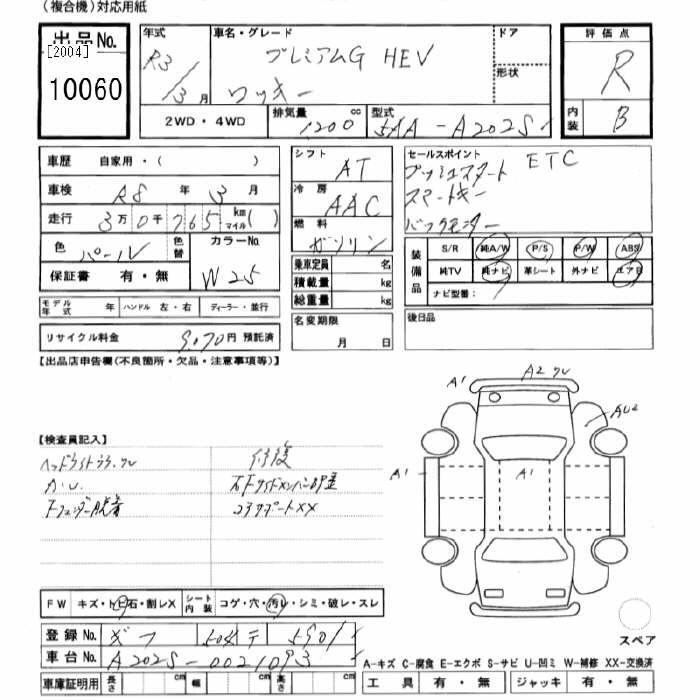 (複合機)対応用紙
出品No.
[2004]
10060
年式
R3/3月
車名・グレード
プレミアムG HEV
ロッキー
ドア
形状
評価点
R
内装
B
2WD・4WD
排気量 1200 cc
型式 A202S
車歴 自家用・( )
車検 R8年3月
走行 3万0千765 km マイル( )
色 パール
色替
カラーNo. W25
保証書 有・無
モデル年式 年 ハンドル 左・右 ディーラー・並行
リサイクル料金 9,070円 預託済
シフト AT
冷房 AAC
燃料 ガソリン
乗車定員 名
積載量 kg
総重量 kg
名変期限
月 日
セールスポイント ETC
プッシュスタート
スマートキー
バックモニター
装備品
S/R 純A/W P/S P/W ABS
純TV 純ナビ 革シート 外ナビ エアB
ナビ型番:
後日品
【出品店申告欄(不良箇所・欠品・注意事項等)】
【検査員記入】
修復
XX
A1
A2
AU2
A1
A1
FW キズ・トビ石・割レX シート内装 コゲ・穴・汚レ・シミ・破レ・スレ
登録No.
車台No. A202S-0021093
車庫証明用 長さ cm 幅 cm 高さ cm
スペア
A-キズ C-腐食 E-エクボ S-サビ U-凹ミ W-補修 XX-交換済
工具 有・無 ジャッキ 有・無